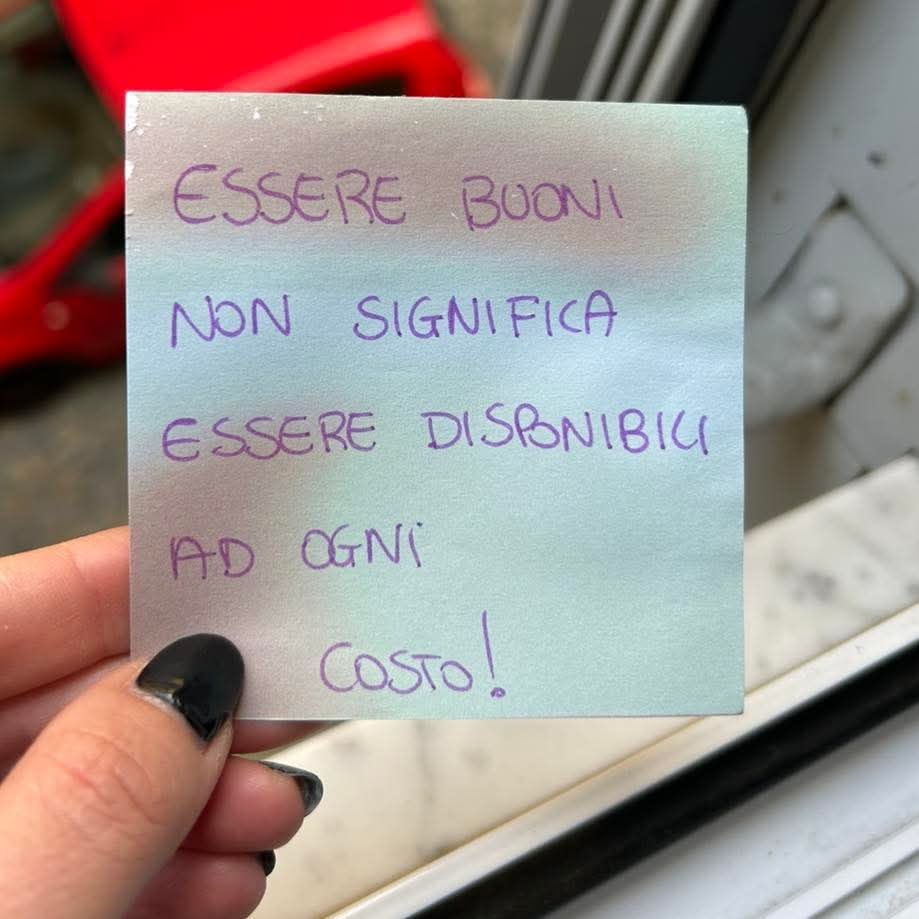 ESSERE BUONI
NON SIGNIFICA
ESSERE DISPONIBILI
AD OGNI
COSTO!